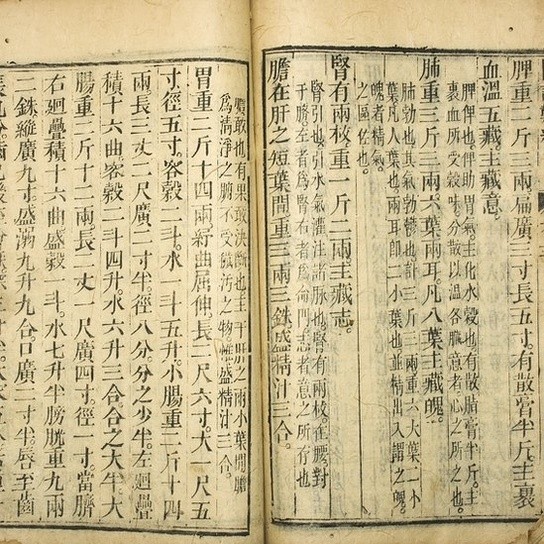 脾重二斤三兩扁廣三寸長五寸有散膏半斤主裹
血溫五藏主藏意
脾俾也俾助胃氣主化水穀也有散膏半斤主
裹血所受穀味分散以溫各臟意者心之所之也
肺重三斤三兩六葉兩耳凡八葉主藏魄
肺勃也其氣勃鬱也計三斤三兩重六大葉一小
葉凡人葉也兩耳即二小葉也並精出入謂之魄
魄者精氣
之匡佐也
腎有兩枚重一斤二兩主藏志
腎引也引水氣灌注諸脉也腎有兩枚在腰對
于臍在左者為腎右者為命門志者意之所存也
膽在肝之短葉間重三兩三銖盛精汁三合
膽敢也有果敢決斷也主于肝之兩小葉間膽
為清淨之腑不受穢污之物惟盛精汁三合
胃重二斤十四兩紆曲屈伸長二尺六寸大一尺五
寸徑五寸容穀二斗水一斗五升小腸重二斤十四
兩長二丈二尺廣二寸半徑八分分之少半左廻疊
積十六曲容穀二斗四升水六升三合合之大半大
腸重二斤十二兩長二丈一尺廣四寸徑一寸當臍
右廻疊積十六曲盛穀一斗水七升半膀胱重九兩
二銖縱廣九寸盛溺九升九合口廣二寸半唇至齒
長九分